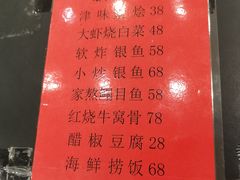 津味 烩 38
大虾烧白菜 48
软炸银鱼 58
小炒银鱼 68
家熬 目鱼 58
红烧牛窝骨 78
醋椒豆腐 28
海鲜捞饭 68